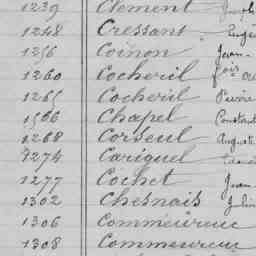 1239 Clément Joseph
1248 Cressant Eugè
1256 Coinon Jean-
1260 Cocheril fois au
1265 Cocheril Pierre
1566 Chapel Constant
1268 Corseul Auguste
1274 Cariguel
1277 Cochet Jean
1302 Chesnais Julien
1306 Commeureuc
1308 Commeureuc